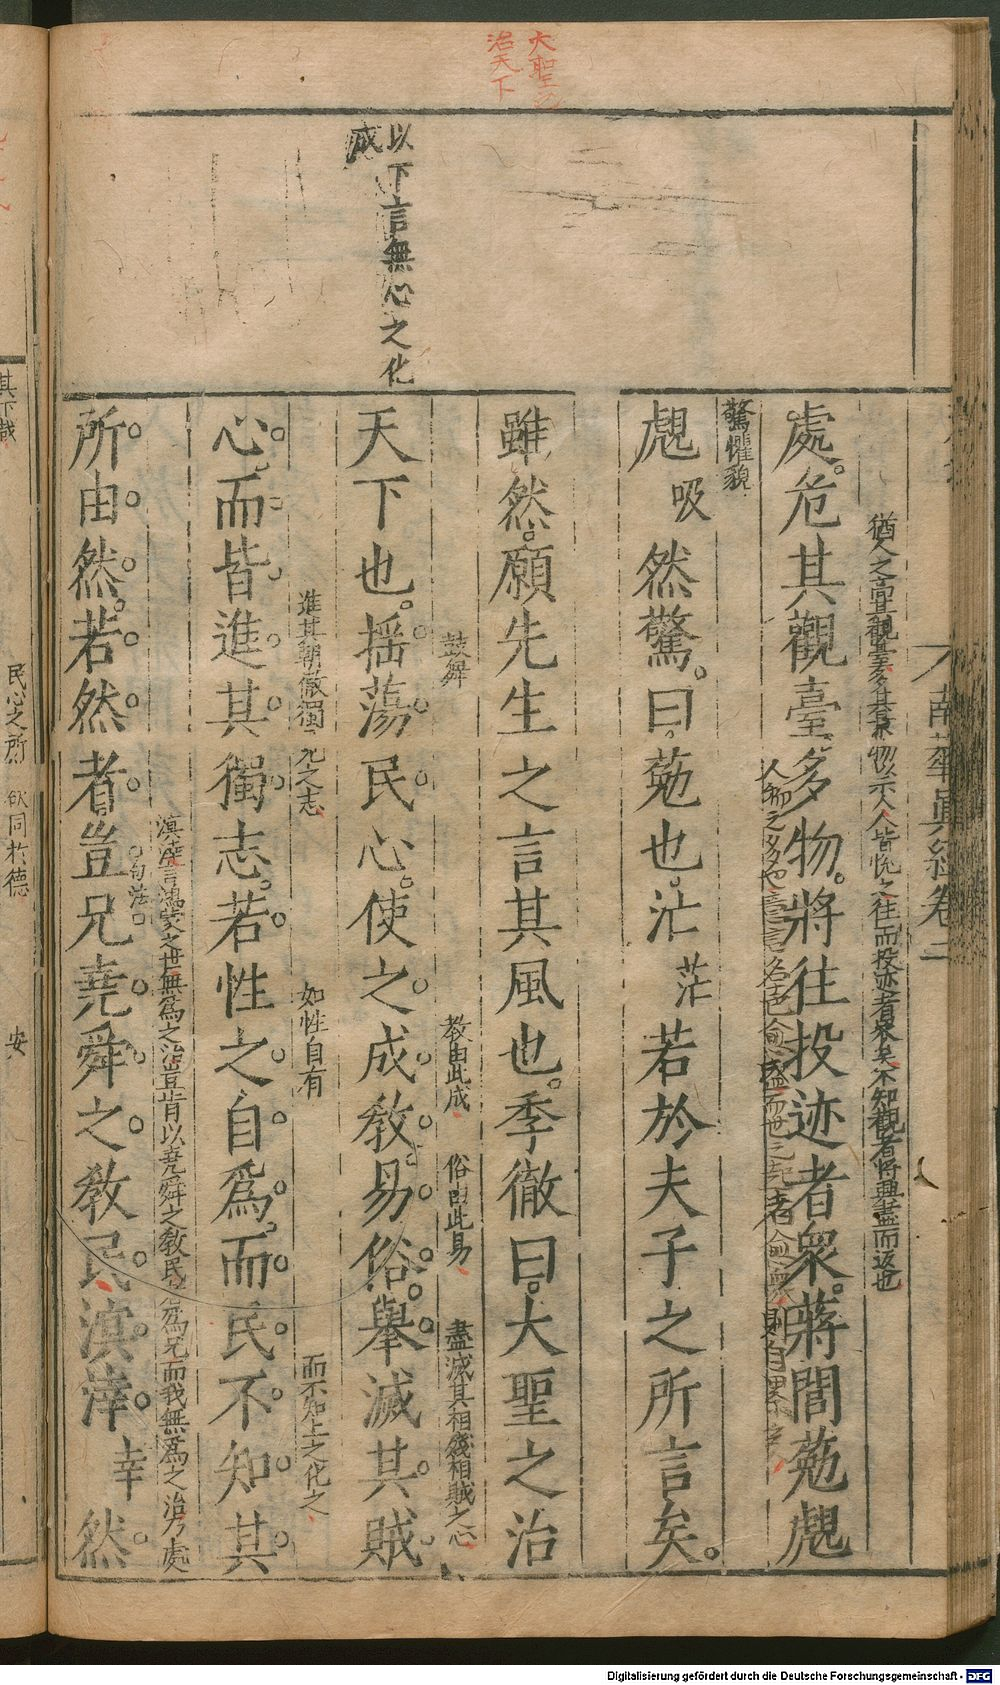 大聖之
治天下
以下言無心之化
成
南華眞經卷二
猶人之高其觀臺多其景物以示人人皆悅之往而投迹者衆矣不知觀者將興盡而返也
處危其觀臺多物將往投迹者衆蔣閭葂覤
驚懼貌
覤吸然驚曰葂也汒茫若於夫子之所言矣
雖然願先生之言其風也季徹曰大聖之治
鼓舞 教由此成 俗由此易 盡滅其相殘相賊之心
天下也揺蕩民心使之成教易俗舉滅其賊
進其朝徹獨元之志 如性自有 而不知上之化之
心而皆進其獨志若性之自爲而民不知其
溟涬言鴻蒙之世無爲之治豈肯以堯舜之教民爲兄而我無爲之治乃處
句法
所由然若然者豈兄堯舜之教民溟涬幸然
其下哉
民心之所欲同於德
安
Digitalisierung gefördert durch die Deutsche Forschungsgemeinschaft - DFG